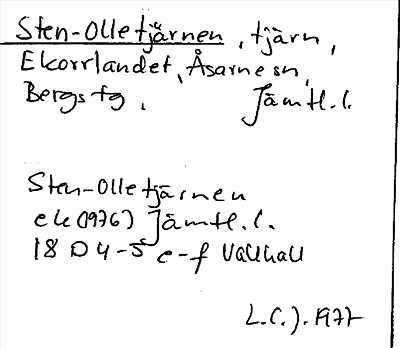 Sten-Olletjärnen, tjärn,
Ekorrlandet, Åsarne sn,
Bergs fg, Jämtl.l.
Sten-Olletjärnen
ek (1976) Jämtl.l.
18 D 4-5 e-f Vallhall
L.C.J. 1977